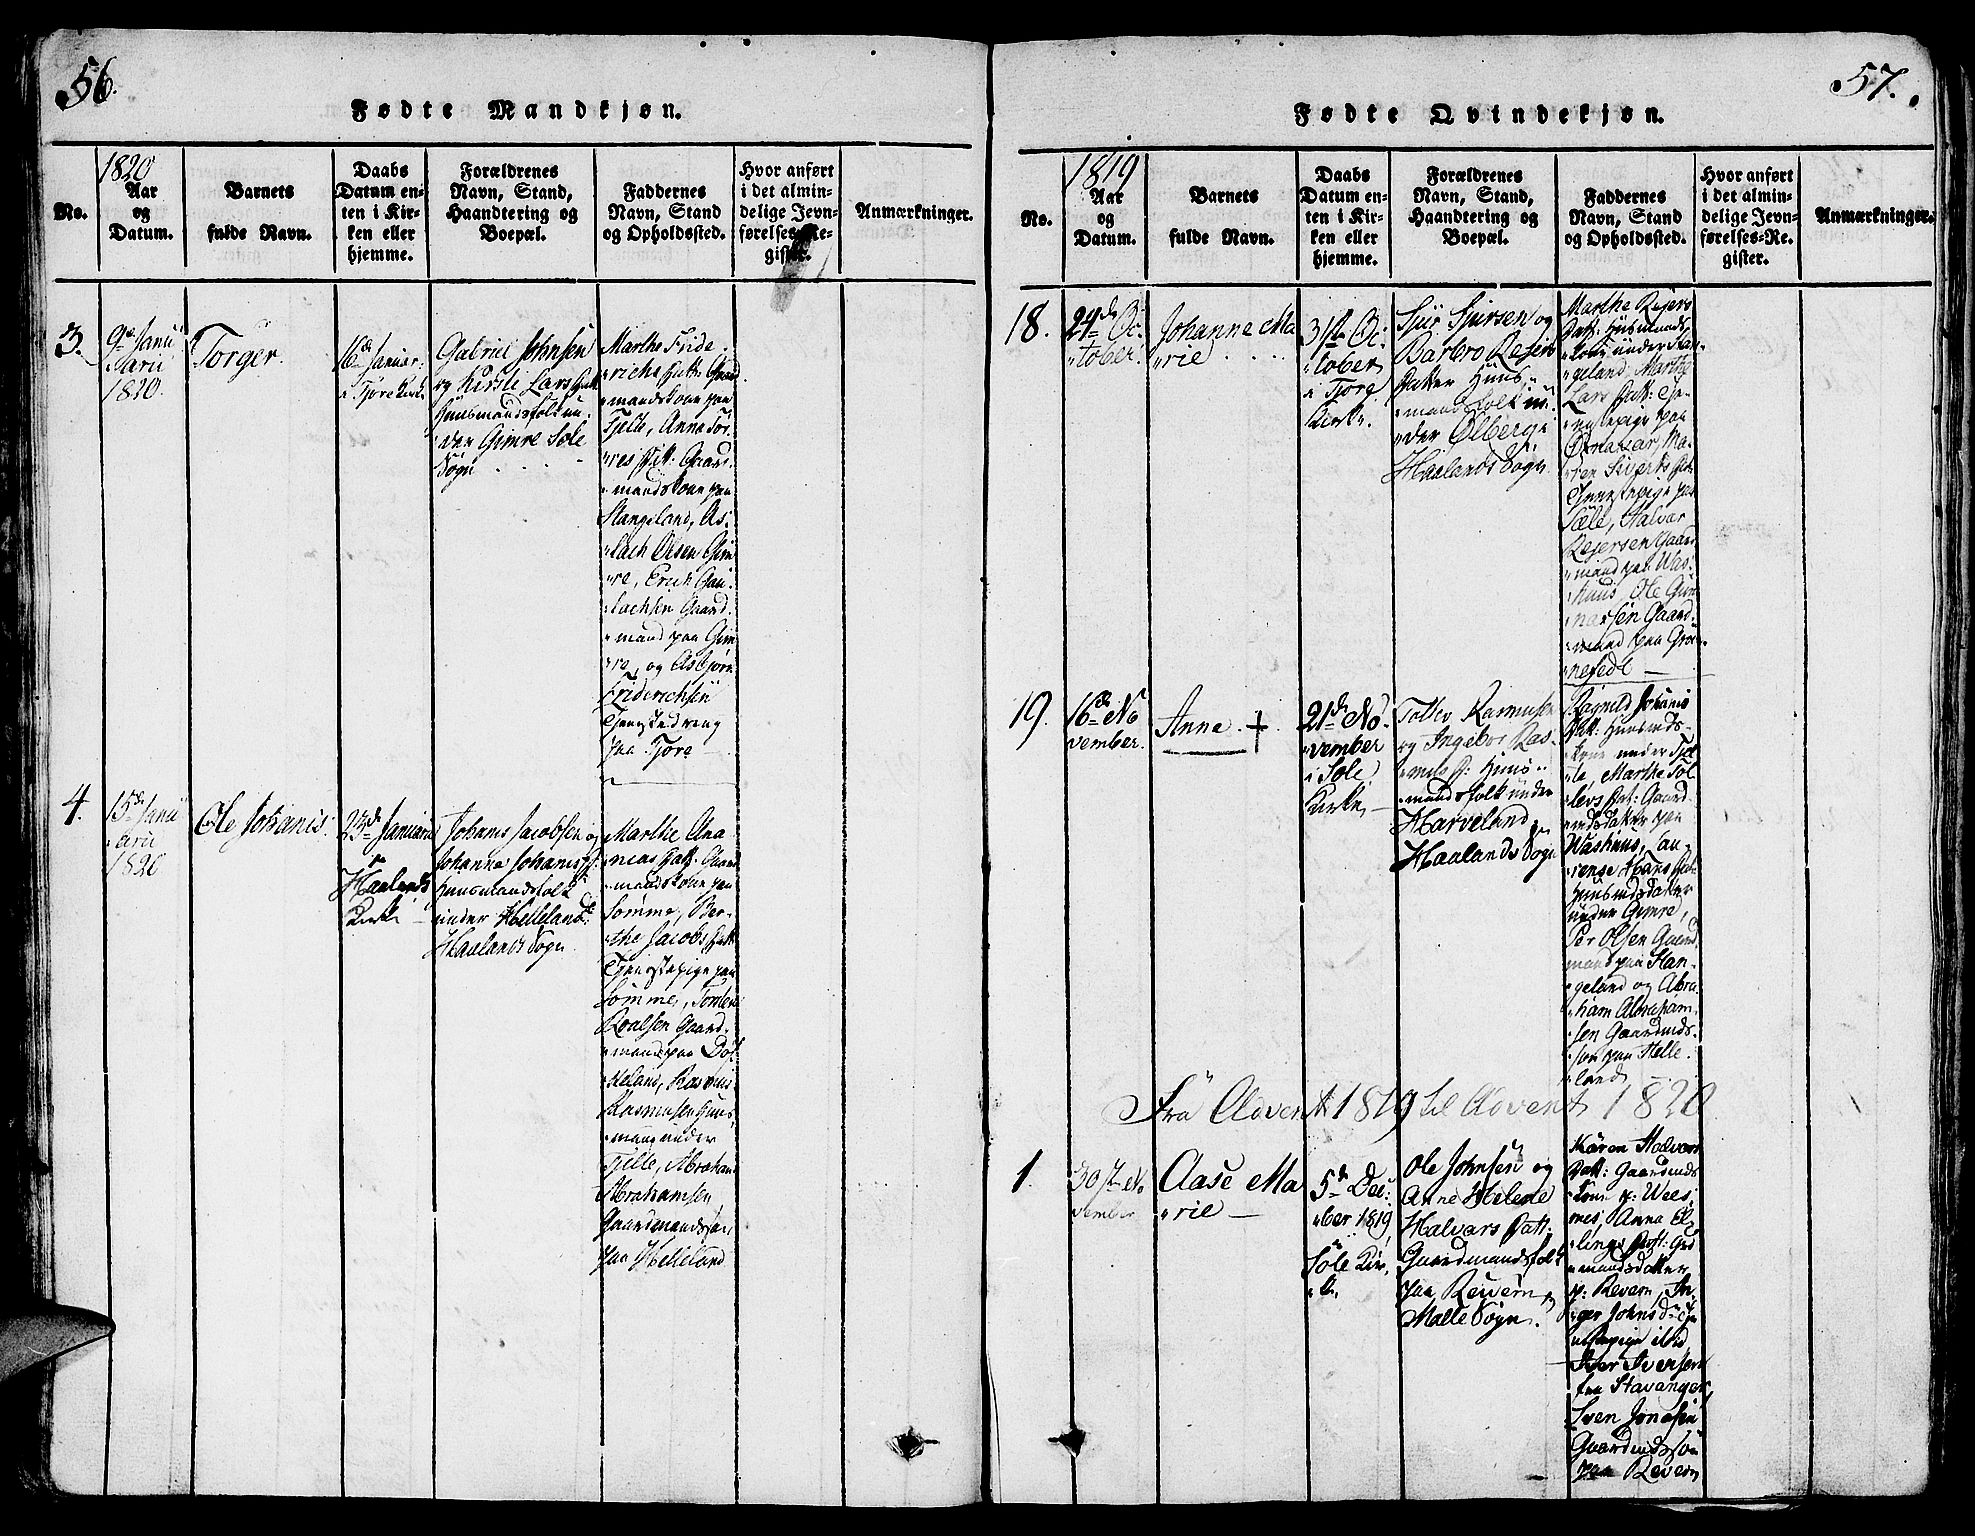 56.
Fødte Mandkjøn.
No.
1820
Aar
og
Datum.
Barnets
fulde Navn.
Daabs
Datum en-
ten i Kir-
ken eller
hjemme.
Forældrenes
Navn, Stand,
Haandtering og
Boepæl.
Faddernes
Navn, Stand
og Opholdssted.
Hvor anført
i det almin-
delige Jevn-
førelses-Re-
gister.
Anmærkninger.
3.
9de Janu
arii
1820.
Torger.
16de Januar:
i Tjore Kirke
Gabriel Johnsen
og Kirsti Lars Datt:
Huusmandsfolk un-
der Gimre Sole
Sogn
Marthe Fride-
richs Datt: Gaard
mandskone paa
Tjelte, Anna Tor-
res Datt: Gaard-
mandskone paa
Stangeland, As-
lach Olsen Gim
re, Erich Gau-
tachsen Gaard-
mand paa Gim
re, og Asbjørn
Friderichsen
Tjenestedreng
paa Tjore
4.
15de Janu
arii
1820
Ole Johanis.
23de Januarii
Haalands
Kirke
Johanis Jacobsen og
Johanna Johanis D:
Huusmandsfolk
under Helleland
Haalands Sogn
Marthe Ana
nias Datt: Gaard
mandskone paa
Somme, Ber-
the Jacobs Datt
Tjenestepige paa
Somme, Torsten
Roalsen Gaard-
mand paa
Rasmus
Rasmusen Huus-
mand under
Tjelte, Abraham
Abrahamsen
Gaardmandssøn
paa Helleland
57.
Fødte Qvindekjøn.
No.
1819
Aar
og
Datum.
Barnets
fulde Navn.
Daabs
Datum en-
ten i Kir-
ken eller
hjemme.
Forældrenes
Navn, Stand,
Haandtering og
Boepæl.
Faddernes
Navn, Stand
og Opholdssted.
Hvor anført
i det almin-
delige Jevn-
førelses-Re-
gister.
Anmærkninger.
18.
24de Oc-
tober.
Johanne Ma
rie
31te Oc-
tober
i Tjore
Kirke.
Sjur Sjursen og
Barbro Rejers
Datter Huus-
mandsfolk un-
der Ølberg
Haalands Sogn
Marthe Rejers
Datt: Huusmands
kone under Stan-
geland, Marthe
Lars Datt: Tje-
nestepige paa
Ma-
ren Siverts Dat:
Tjenestepige paa
Sæle, Halvar
Rejersen Gaard
mand paa Was-
huus, Ole Gun
narsen Gaard-
mand paa Gron-
nesede
19.
16de No
vember.
Anne. +
21de No-
vember
i Sole
Kirke,
Tollev Rasmusen
og Ingebor Ras-
mus D: Huus-
mandsfolk under
Harveland
Haalands Sogn
Ragnild Johanis
Datt: Huusmds
kone under Tjel
te, Marthe Tol
levs Dat: Gaard
mdsdatter paa
Washuus, Lau-
rense Hans Dat:
Huusmdsdatter
under Gimre,
Per Olsen Gaard
mand paa Stan-
geland og Abra
ham Abraham-
sen Gaardmds-
søn paa Helle-
land
Fra Advent 1819 til Advent 1820
1.
30te No
vember
Aase Ma
rie
5de Dec:
ber 1819
Sole Kir-
ke,
Ole Johnsen og
Anne Helene
Halvars Datt:
Gaardmandsfolk
paa Revern
Malle Sogn.
Karen Halvars
Datt: Gaardmds
Kone p:
Anna El-
lings Datt: Grd
mandsdatter
p: Revern, In-
ger Johns D:
Iver Iversen
fra Stavanger,
Sven Jonasen
Gaardmdssøn
paa Revern